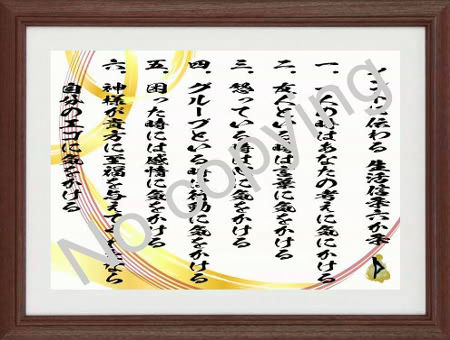 インドに伝わる 生活信条六か条
一、一人の時はあなたの考えに気にかける
二、友人といる時は言葉に気をかける
三、怒っている時は心に気をかける
四、グループといる時は行動に気をかける
五、困った時には感情に気をかける
六、神様が貴方に至福を与えてくれたなら
自分のエゴに気をかける
No copying